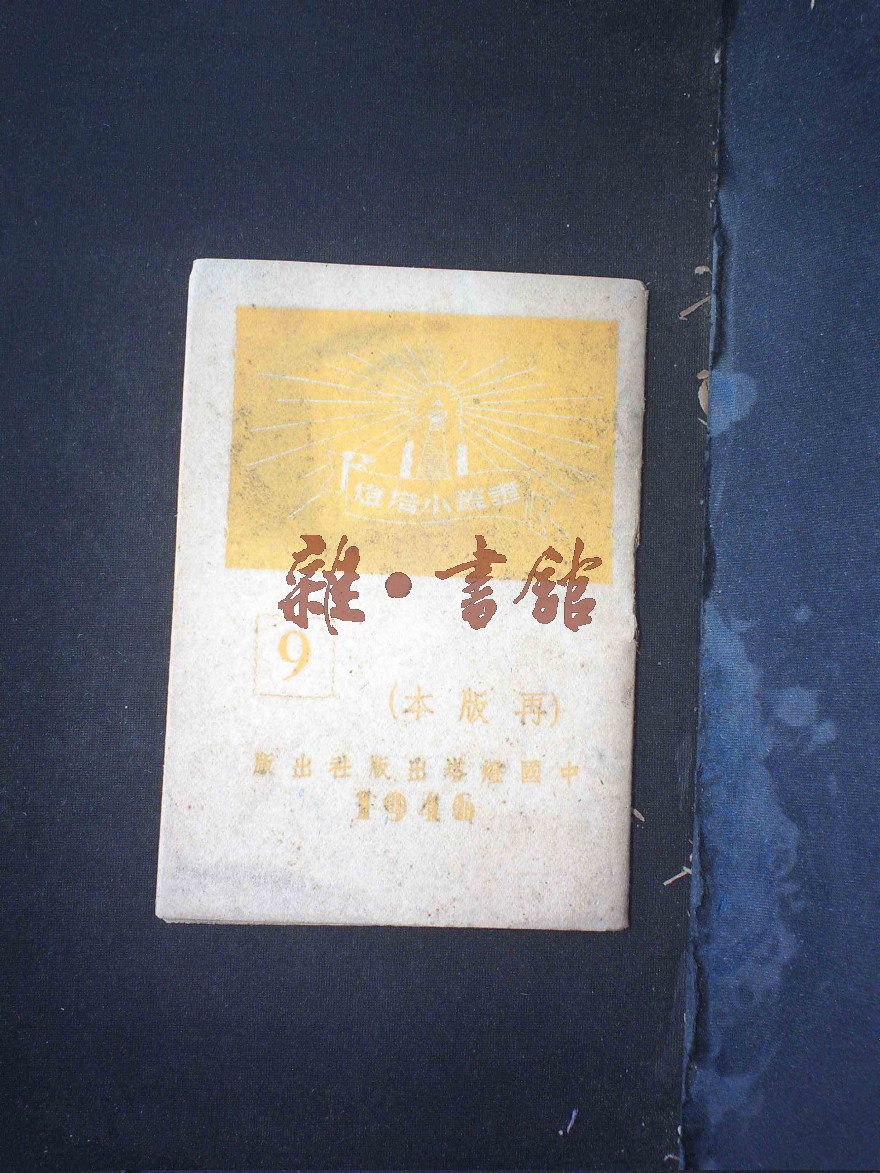 燈塔小叢書
雜·書館
9
(再版本)
中國燈塔出版社出版
1946